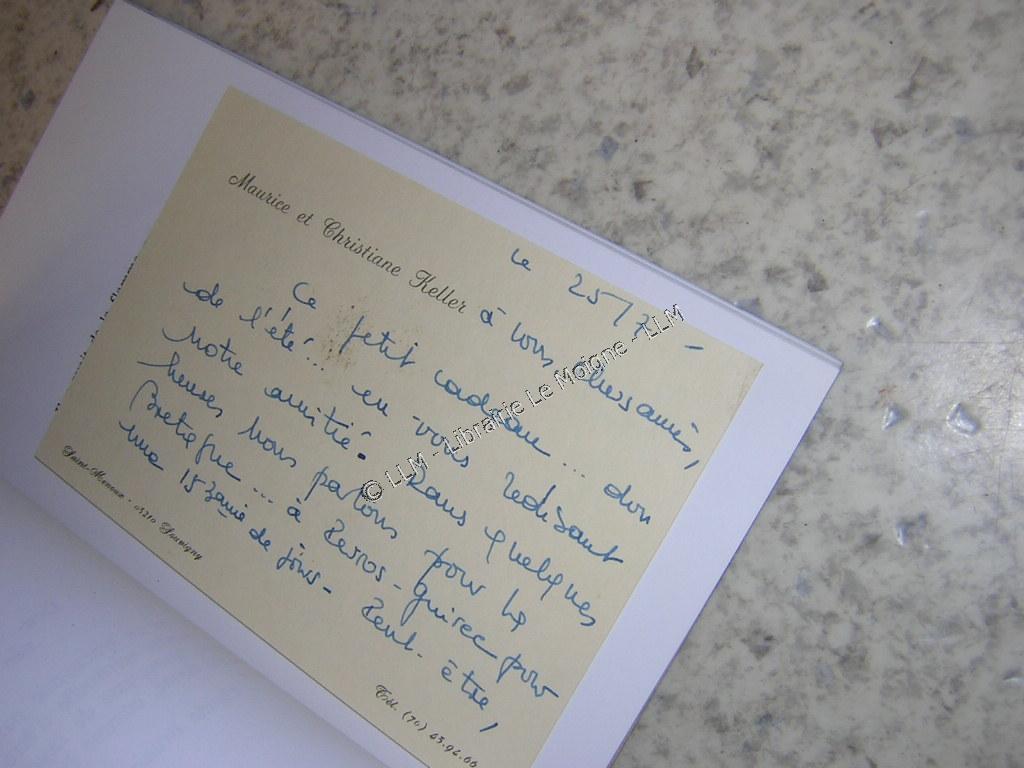 le 25/7 -
Maurice et Christiane Keller à vous, chers amis,
Ce petit cadeau... don
de l'été!... en vous redisant
notre amitié. Dans quelques
heures, nous partons pour la
Bretagne... à Perros-Guirec pour
une 15zaine de jours. Peut-être,
Saint-Menoux - 03210 Souvigny
Tél. (70) 43.92.66
© LLM - Librairie Le Moigne - LLM